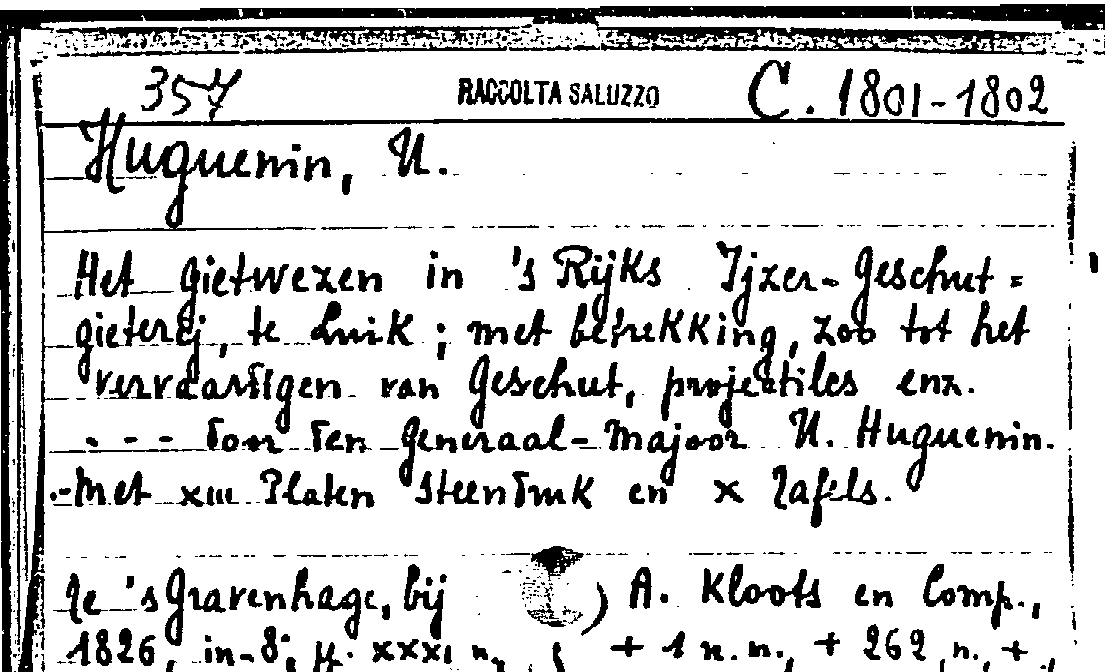 357 RACCOLTA SALUZZO C. 1801-1802
Huguenin, U.
Het gietwezen in 's Rijks Ijzer-Geschut=
gieterij, te Luik; met betrekking, zoo tot het
vervaardigen van Geschut, projectiles enz.
- - - door den Generaal-Majoor U. Huguenin.
-Met XIII Platen Steendruk en X Tafels.
Te 's Gravenhage, bij ) A. Kloots en Comp.,
1826, in-8°, pp. XXXI n., + 1 n.n., + 262, n., +